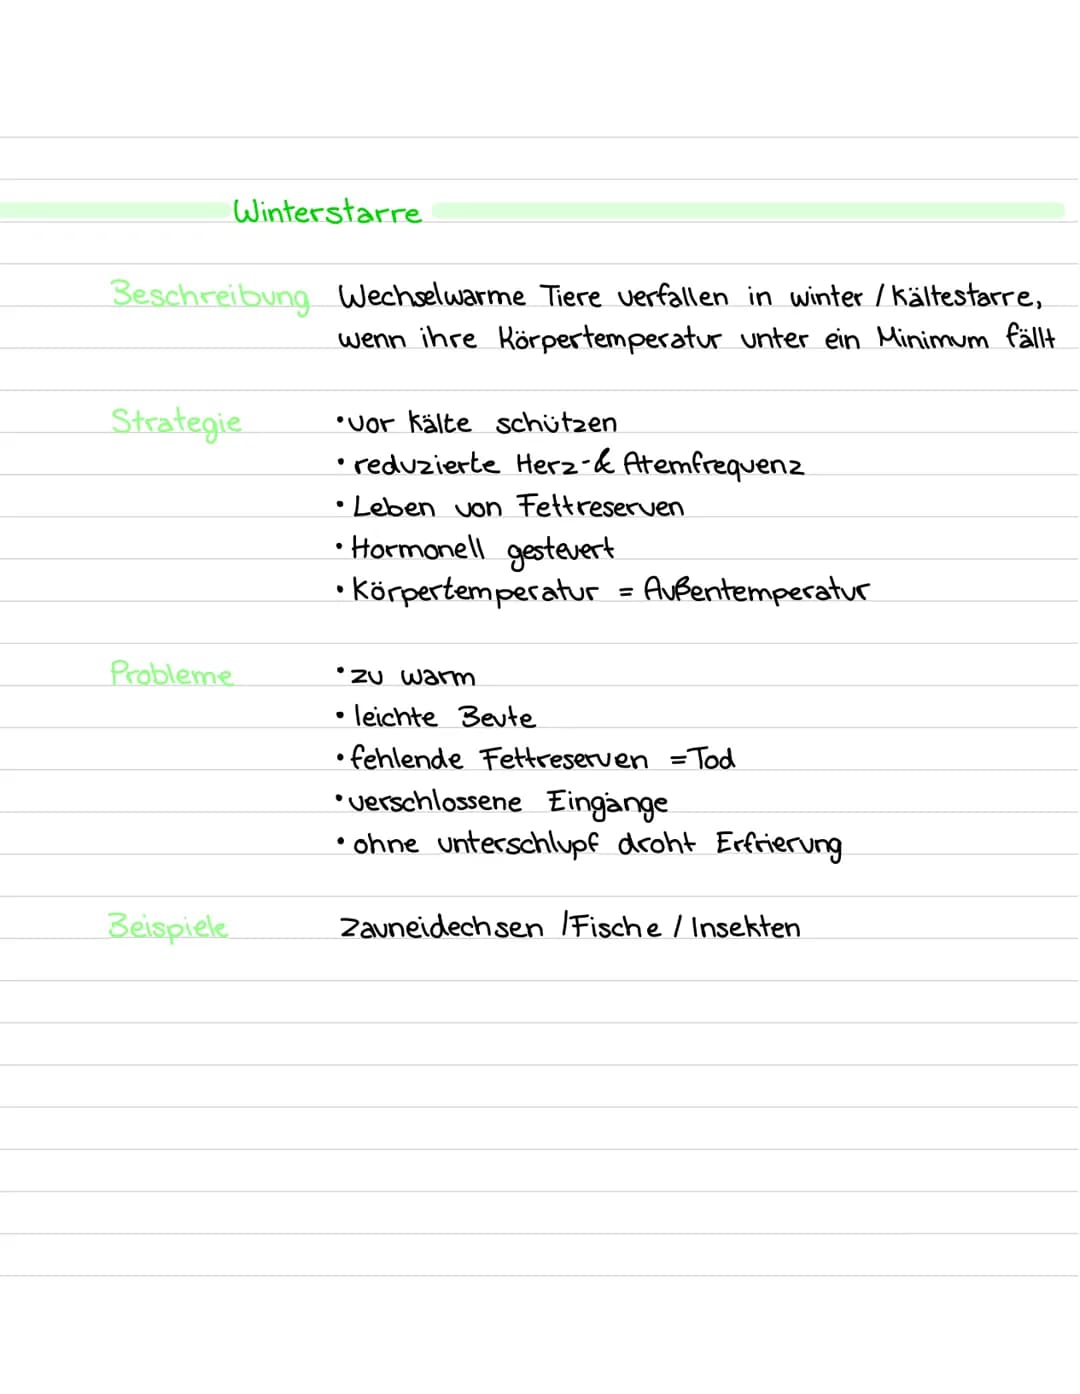 Winterstarre
Beschreibung Wechselwarme Tiere verfallen in winter / kältestarre,
wenn ihre Körpertemperatur unter ein Minimum fällt
Strategie • vor Kälte schützen
• reduzierte Herz-& Atemfrequenz
• Leben von Fettreserven
• Hormonell gesteuert
• Körpertemperatur = Außentemperatur
Probleme • zu warm
• leichte Beute
• fehlende Fettreserven = Tod
• verschlossene Eingänge
• ohne unterschlupf droht Erfrierung
Beispiele Zauneidechsen / Fische / Insekten